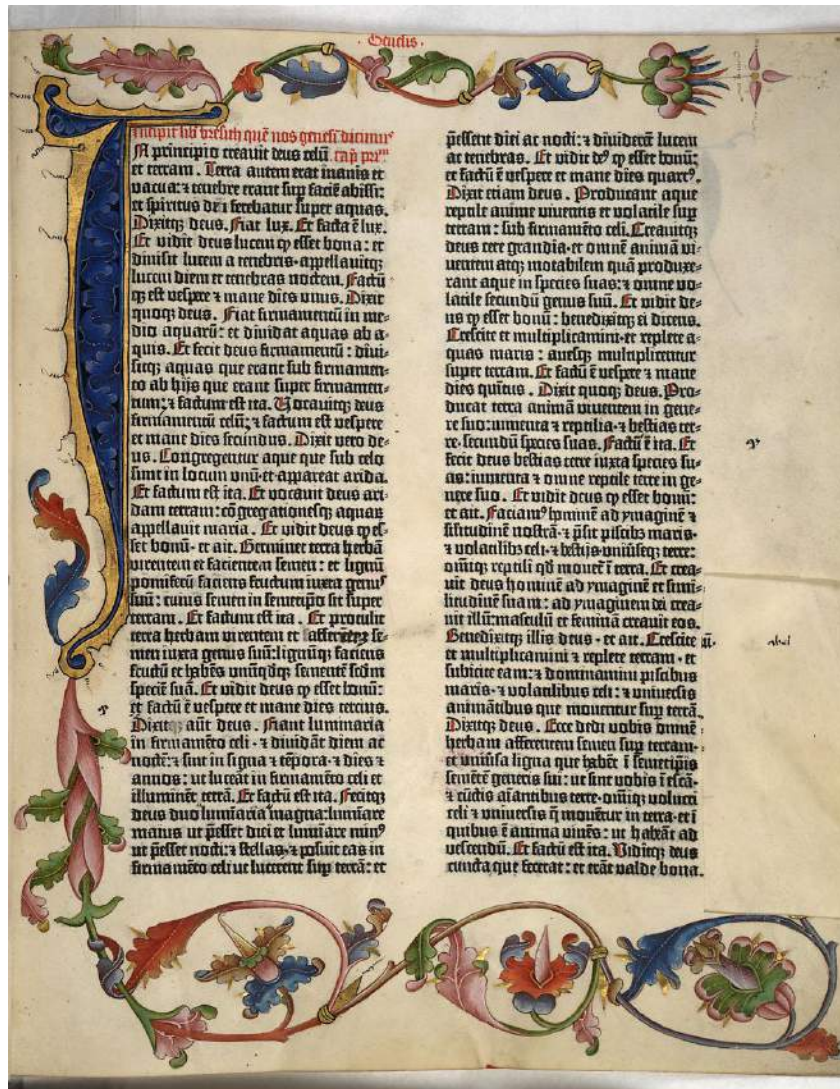 Genesis.
Incipit lib bresith quē nos genesi dicimꝰ
A principio creavit deus celū cap̄ prīm
et terram. Terra autem erat inanis et
vacua: ⁊ tenebre erant sup faciē abissi:
et spiritus dei ferebatur super aquas.
Dixitqꝫ deus. Fiat lux. Et facta ē lux.
Et vidit deus lucem ꝙ esset bona: et
divisit lucem a tenebris·appellavitqꝫ
lucem diem et tenebras noctem. Factū
qꝫ est vespere ⁊ mane dies unus. Dixit
quoqꝫ deus. Fiat firmamentū in me⸗
dio aquarū: et dividat aquas ab a⸗
quis. Et fecit deus firmamentū: divi⸗
sitqꝫ aquas que erant sub firmamen⸗
to ab hijs que erant super firmamen⸗
tum: ⁊ factum est ita. Vocavitqꝫ deus
firmamentū celū: ⁊ factum est vespere
et mane dies secundus. Dixit vero de⸗
us. Congregentur aque que sub celo
sunt in locum unū·et appareat arida.
Et factum est ita. Et vocavit deus ari⸗
dam terram: cōgregationesqꝫ aquaꝝ
appellavit maria. Et vidit deus ꝙ es⸗
set bonū· et ait. Germinet terra herbā
virentem et facientem semen: et lignū
pomiferū faciens fructum iuxta genuꝰ
suū: cuius semen in semetipso sit super
terram. Et factum est ita. Et protulit
terra herbam virentem et afferētē se⸗
men iuxta genus suū: lignūqꝫ faciens
fructū et habēs unūqdqꝫ sementē scdm
speciē suā. Et vidit deus ꝙ esset bonū:
et factū ē vespere et mane dies tercius.
Dixitqꝫ aūt deus. Fiant luminaria
in firmamēto celi· ⁊ dividāt diem ac
noctē: ⁊ sint in signa ⁊ tēpora· ⁊ dies ⁊
annos: ut luceāt in firmamēto celi et
illuminēt terrā. Et factū est ita. Fecitqꝫ
deus duo lumīaria magna: lumīare
maius ut p̄esset diei et lumīare minꝰ
ut p̄esset nocti: ⁊ stellas· ⁊ posuit eas in
firmamēto celi ut lucerent sup terrā: et
p̄essent diei ac nocti: ⁊ dividerēt lucem
ac tenebras. Et vidit deꝰ ꝙ esset bonū:
et factū ē vespere et mane dies quartꝰ.
Dixit etiam deus. Producant aque
reptile anime viventis et volatile sup
terram: sub firmamēto celi. Creavitqꝫ
deus cete grandia· et omnē animā vi⸗
ventem atqꝫ motabilem quā produxe⸗
rant aque in species suas: ⁊ omne vo⸗
latile secundū genus suū. Et vidit de⸗
us ꝙ esset bonū: benedixitqꝫ ei dicens.
Crescite et multiplicamini· et replete a⸗
quas maris: avesqꝫ multiplicentur
super terram. Et factū ē vespere ⁊ mane
dies quītus. Dixit quoqꝫ deus. Pro⸗
ducat terra animā viventem in gene⸗
re suo: iumenta ⁊ reptilia· ⁊ bestias ter⸗
re· secundū species suas. Factū ē ita. Et
fecit deus bestias terre iuxta species su⸗
as: iumenta ⁊ omne reptile terre in ge⸗
nere suo. Et vidit deus ꝙ esset bonū:
et ait. Faciamꝰ hominē ad ymaginē ⁊
silitudinē nostrā· ⁊ p̄sit piscibꝫ maris·
⁊ volatilibꝫ celi· ⁊ bestijs univiseqꝫ terre:
omīqꝫ reptili qd movet̄ ī terra. Et crea⸗
vit deus hominē ad ymaginē et simi⸗
litudinē suam: ad ymaginem dei crea⸗
vit illū: masculū et feminā creavit eos.
Benedixitqꝫ illis deus· et ait. Crescite
et multiplicamini ⁊ replete terram· et
subicite eam: ⁊ dominamini piscibus
maris· ⁊ volatilibus celi: ⁊ universis
animātibus que moventur sup terrā.
Dixitqꝫ deus. Ecce dedi vobis omnē
herbam afferentem semen sup terram·
et univīsa ligna que habēt ī semetipīs
semētē generis sui: ut sint vobis ī escā·
⁊ cūctis aīantibus terre· omīqꝫ volucri
celi ⁊ universis q̄ movētur in terra· et ī
quibus ē anima vivēs: ut habeāt ad
vescendū. Et factū est ita. Viditqꝫ deus
cuncta que fecerat: et erāt valde bona.